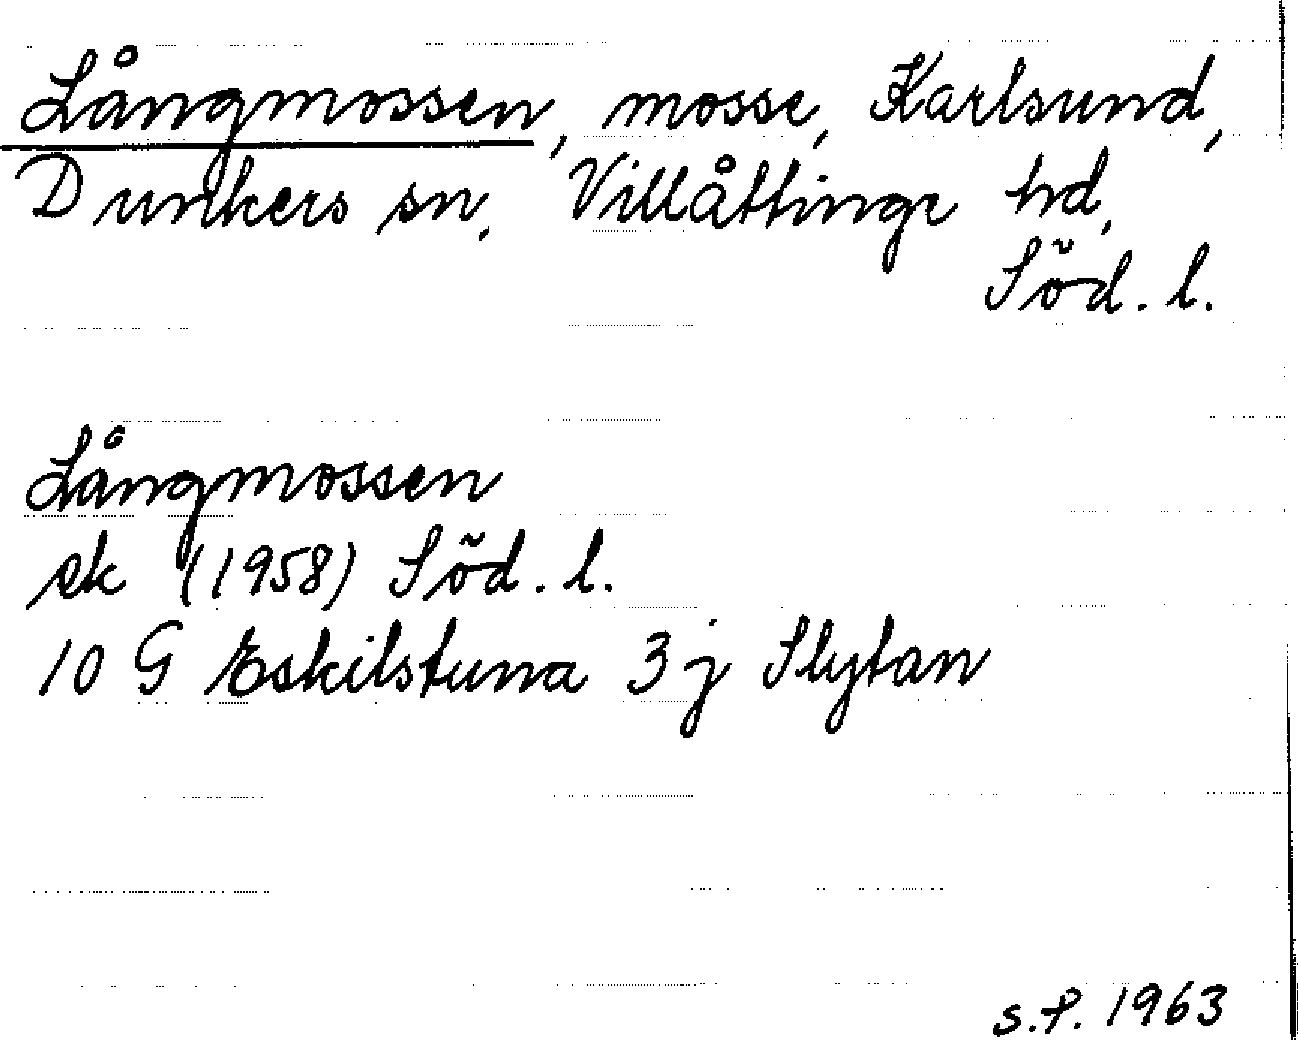 Långmossen, mosse, Karlsund,
Dunkers sn, Villåttinge hd,
Söd. l.
Långmossen
ek (1958) Söd. l.
10 G Eskilstuna 3 j Slytan
s.f. 1963